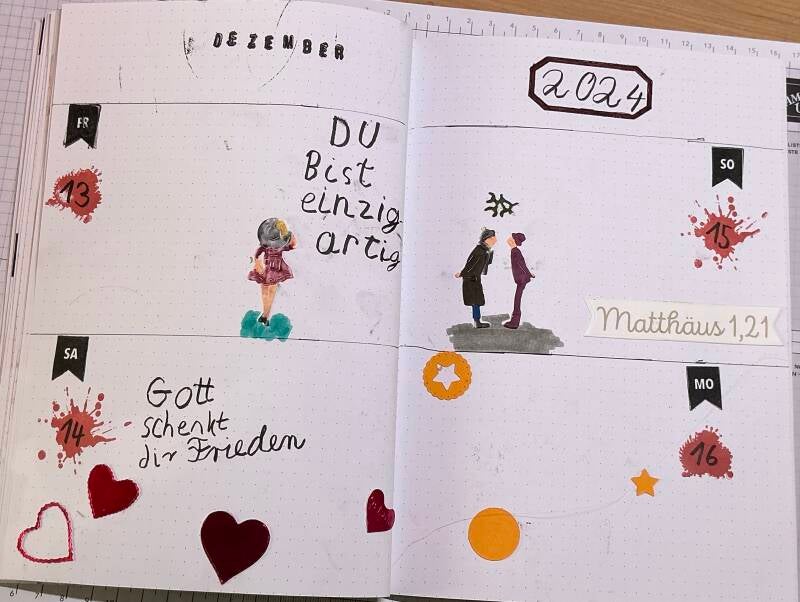 DEZEMBER
FR
13
DU
Bist
einzig
artig
SA
14
Gott
schenkt
dir Frieden
2024
SO
15
Matthäus 1,21
MO
16